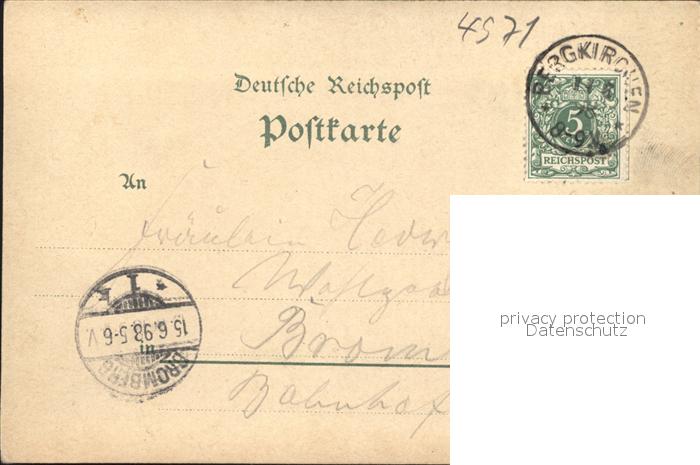 4571
Deutsche Reichspost
Postkarte
BERGKIRCHEN
8-9 N
5
REICHSPOST
An
Fräulein Hedw
Brom
Bahnhof
in
BROMBERG
15.6.98.5-6V.
privacy protection
Datenschutz